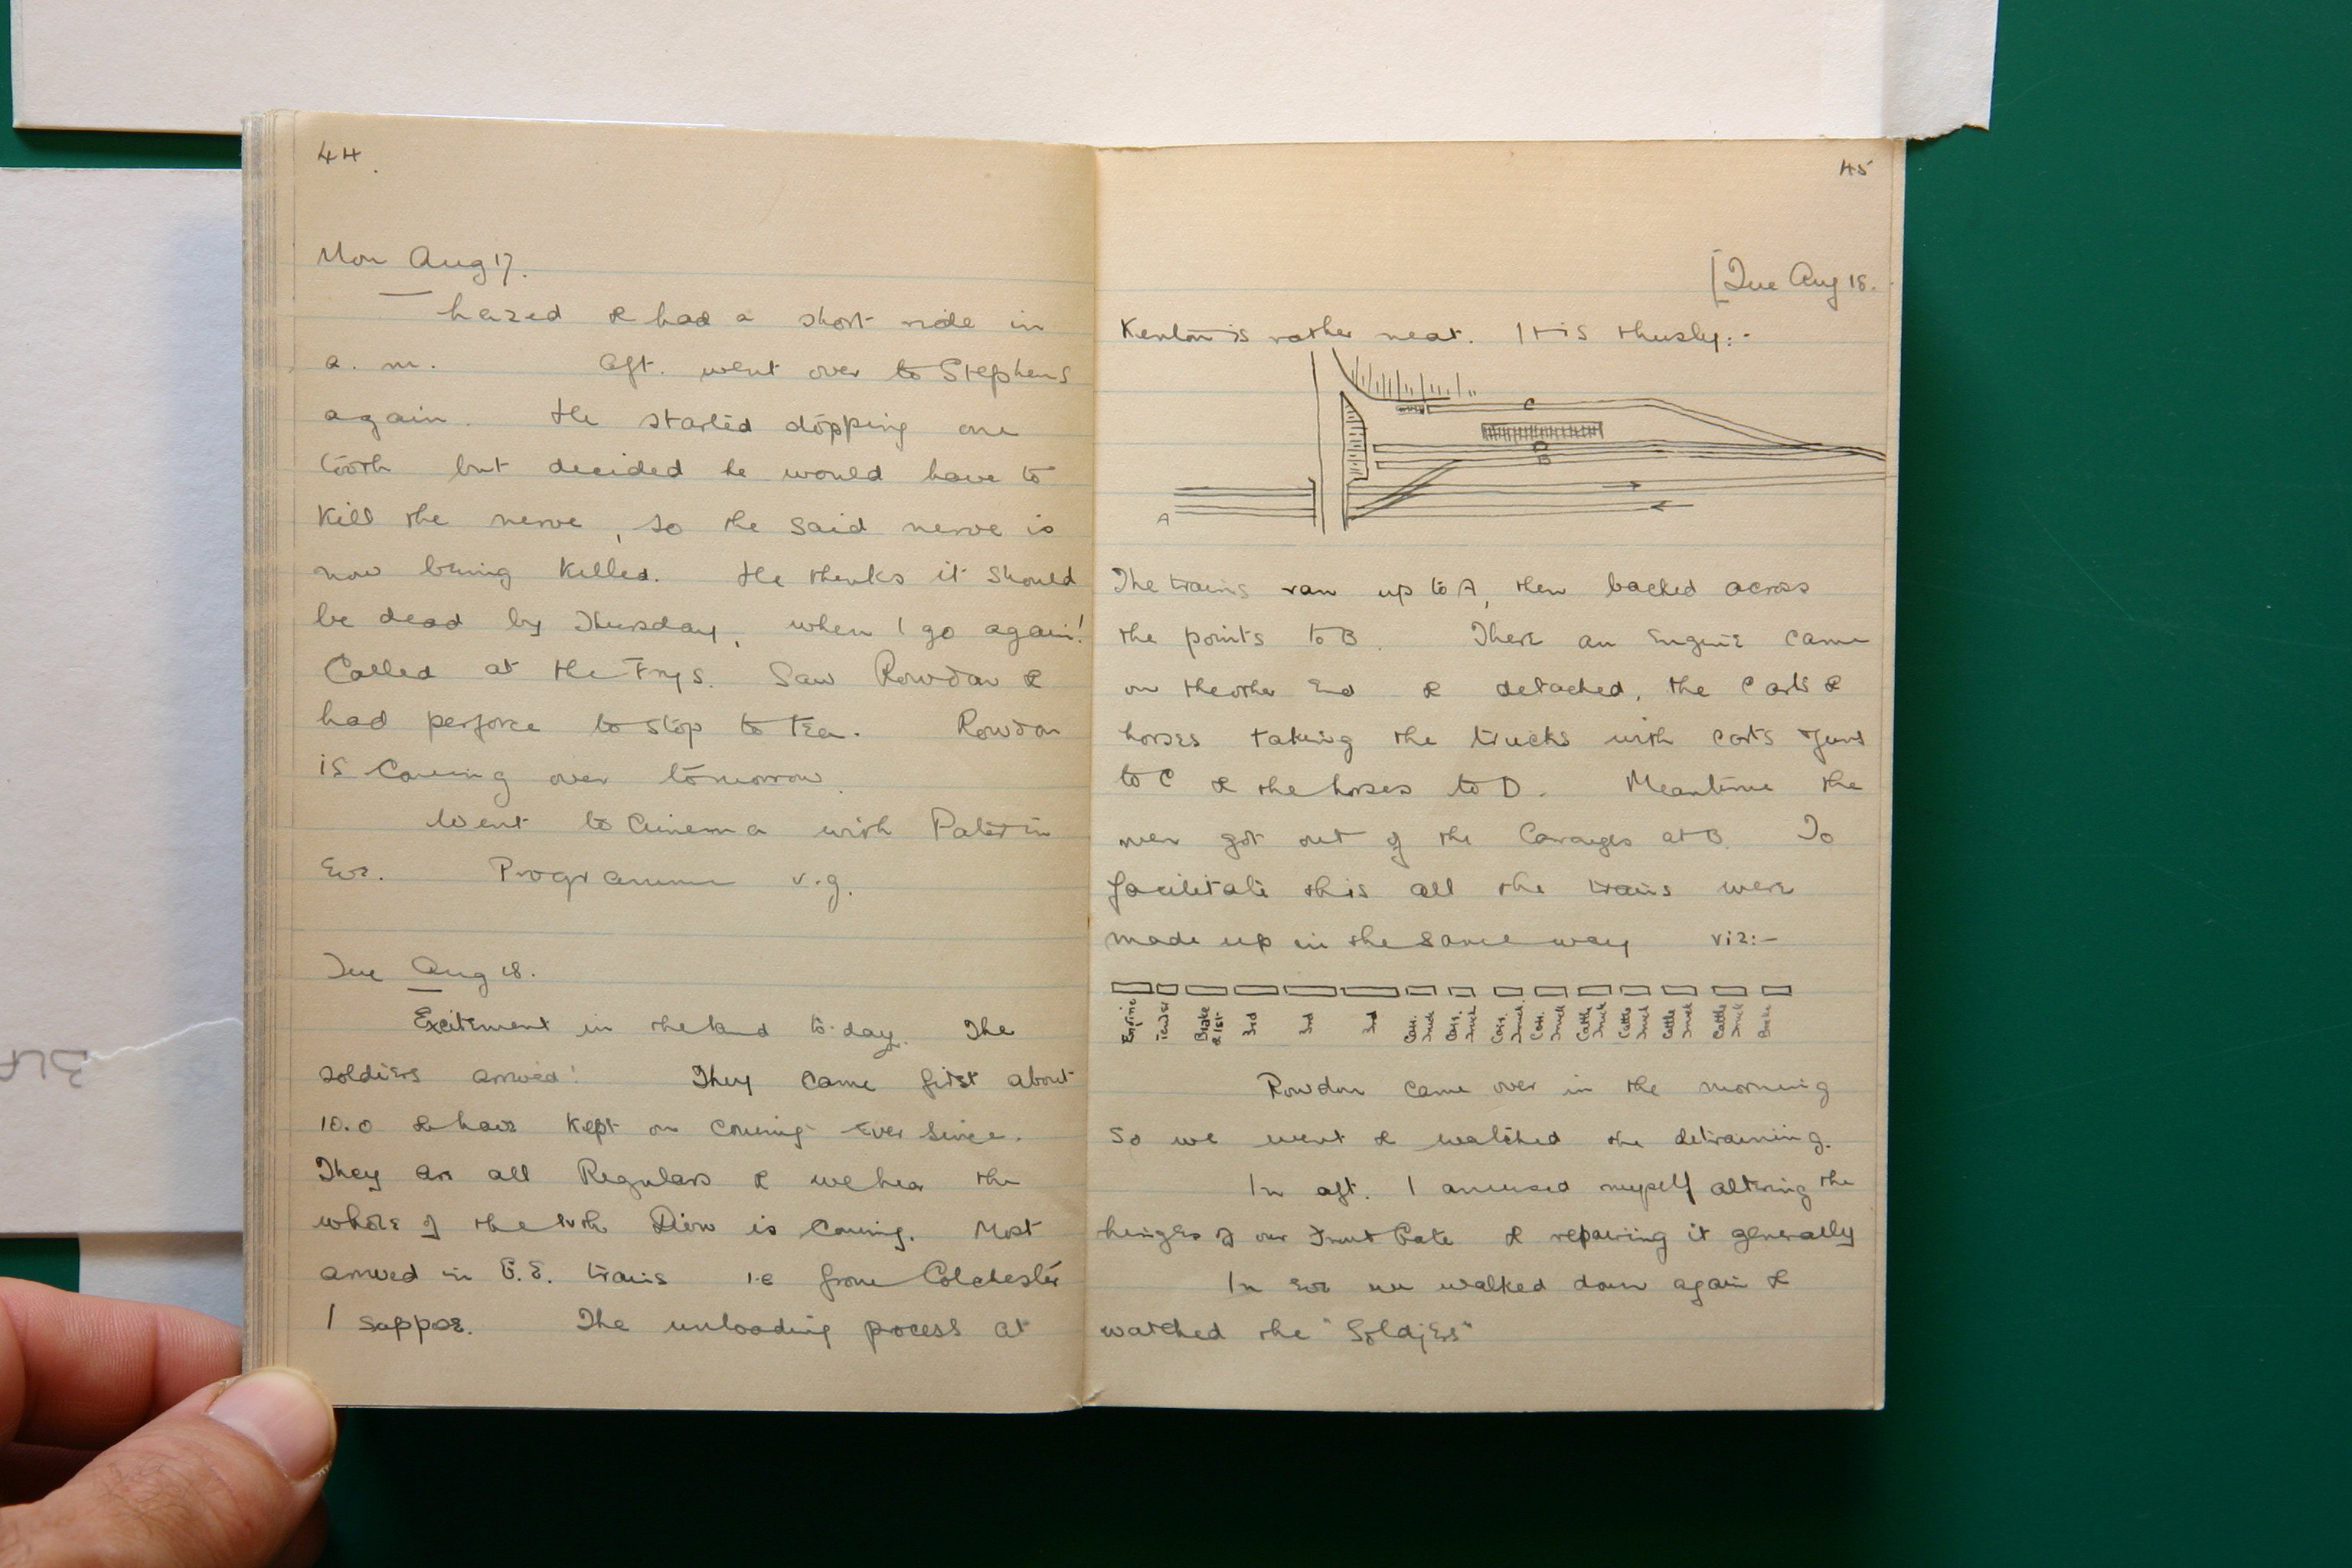 44.
Mon Aug 17.
Lazed & had a short ride in
a. m. Aft. went over to Stephens
again. He started dopping one
tooth but decided he would have to
kill the nerve, so the said nerve is
now being killed. He thinks it should
be dead by Thursday, when I go again!
Called at the Frys. Saw Rowdon &
had perforce to stop to tea. Rowdon
is coming over tomorrow.
Went to Cinema with Pater in
Eve. Programme v.g.
Tue Aug 18.
Excitement in the land to-day. The
soldiers arrived! They came first about
10.0 & have kept on coming ever since.
They are all Regulars & we hear the
whole of the IVth Divn is coming. Most
arrived in G.E. trains i.e from Colchester
I suppose. The unloading process at
45
[Tue Aug 18.
Kenton is rather neat. It is thusly:-
C
D
B
A
The trains ran up to A, then backed across
the points to B. There an engine came
on the other end & detached, the carts &
horses taking the trucks with carts & guns
to C & the horses to D. Meantime the
men got out of the carriages at B. To
facilitate this all the trains were
made up in the same way viz:-
Engine Tender Brake & 1st 3rd 3rd 3rd Carr. Truck Carr. Truck Carr. Truck Carr. Truck Cattle Truck Cattle Truck Cattle Truck Cattle Truck Brake
Rowdon came over in the morning
so we went & watched the detraining.
In aft. I amused myself altering the
hinges of our Front Gate & repairing it generally
In eve we walked down again &
watched the "Soldjers"
3LF